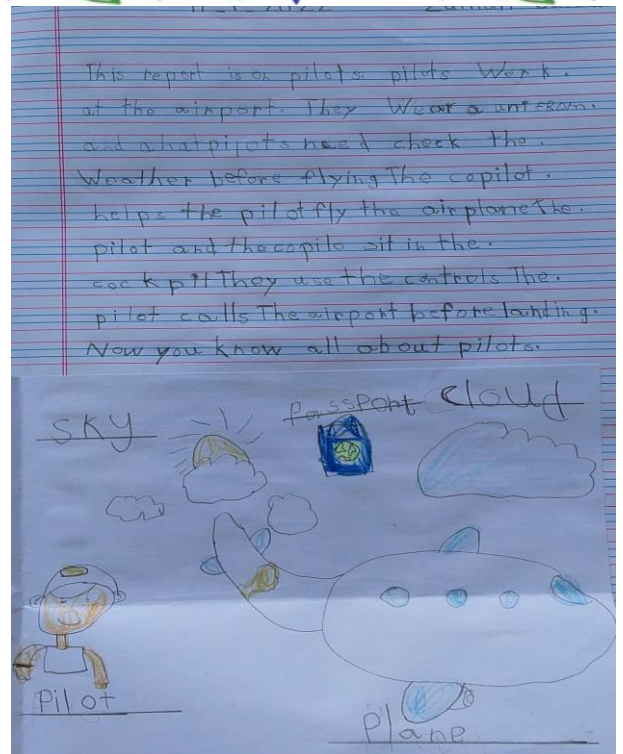 This report is on pilots. pilots Work.
at the airport. They Wear a unifrom.
and what pilots need check the.
Weather before flying The copilot.
helps the pilot fly the airplane The.
pilot and the copilo sit in the.
cockpit They use the controls The.
pilot calls The airport before landing.
Now you know all about pilots.
sky
passport cloud
Pilot
Plane